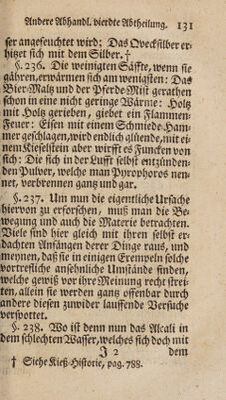 Andere Abhandl. vierdte Abtheilung. 131
ser angefeuchtet wird; Das Qvecksilber er-
hitzet sich mit dem Silber. †
§. 236. Die weinigten Säffte, wenn sie
gähren, erwärmen sich am wenigsten: Das
Bier-Maltz und der Pferde Mist gerathen
schon in eine nicht geringe Wärme: Holtz
mit Holtz gerieben, giebet ein Flammen-
Feuer: Eisen mit einem Schmiede Ham-
mer geschlagen, wird endlich glüende, mit ei-
nem Kieselstein aber wirfft es Funcken von
sich: Die sich in der Lufft selbst entzünden-
den Pulver, welche man Pyrophoros nen-
net, verbrennen gantz und gar.
§. 237. Um nun die eigentliche Ursache
hiervon zu erforschen, muß man die Be-
wegung und auch die Materie betrachten.
Viele sind hier gleich mit ihren selbst er-
dachten Anfängen derer Dinge raus, und
meynen, daß sie in einigen Exempeln solche
vortrefliche ansehnliche Umstände finden,
welche gewiß vor ihre Meinung recht strei-
ten, allein sie werden gantz offenbar durch
andere diesen zuwider lauffende Versuche
verspottet.
§. 238. Wo ist denn nun das Alcali in
dem schlechten Wasser, welches sich doch mit
J 2 dem
† Siehe Kieß-Historie, pag. 788.